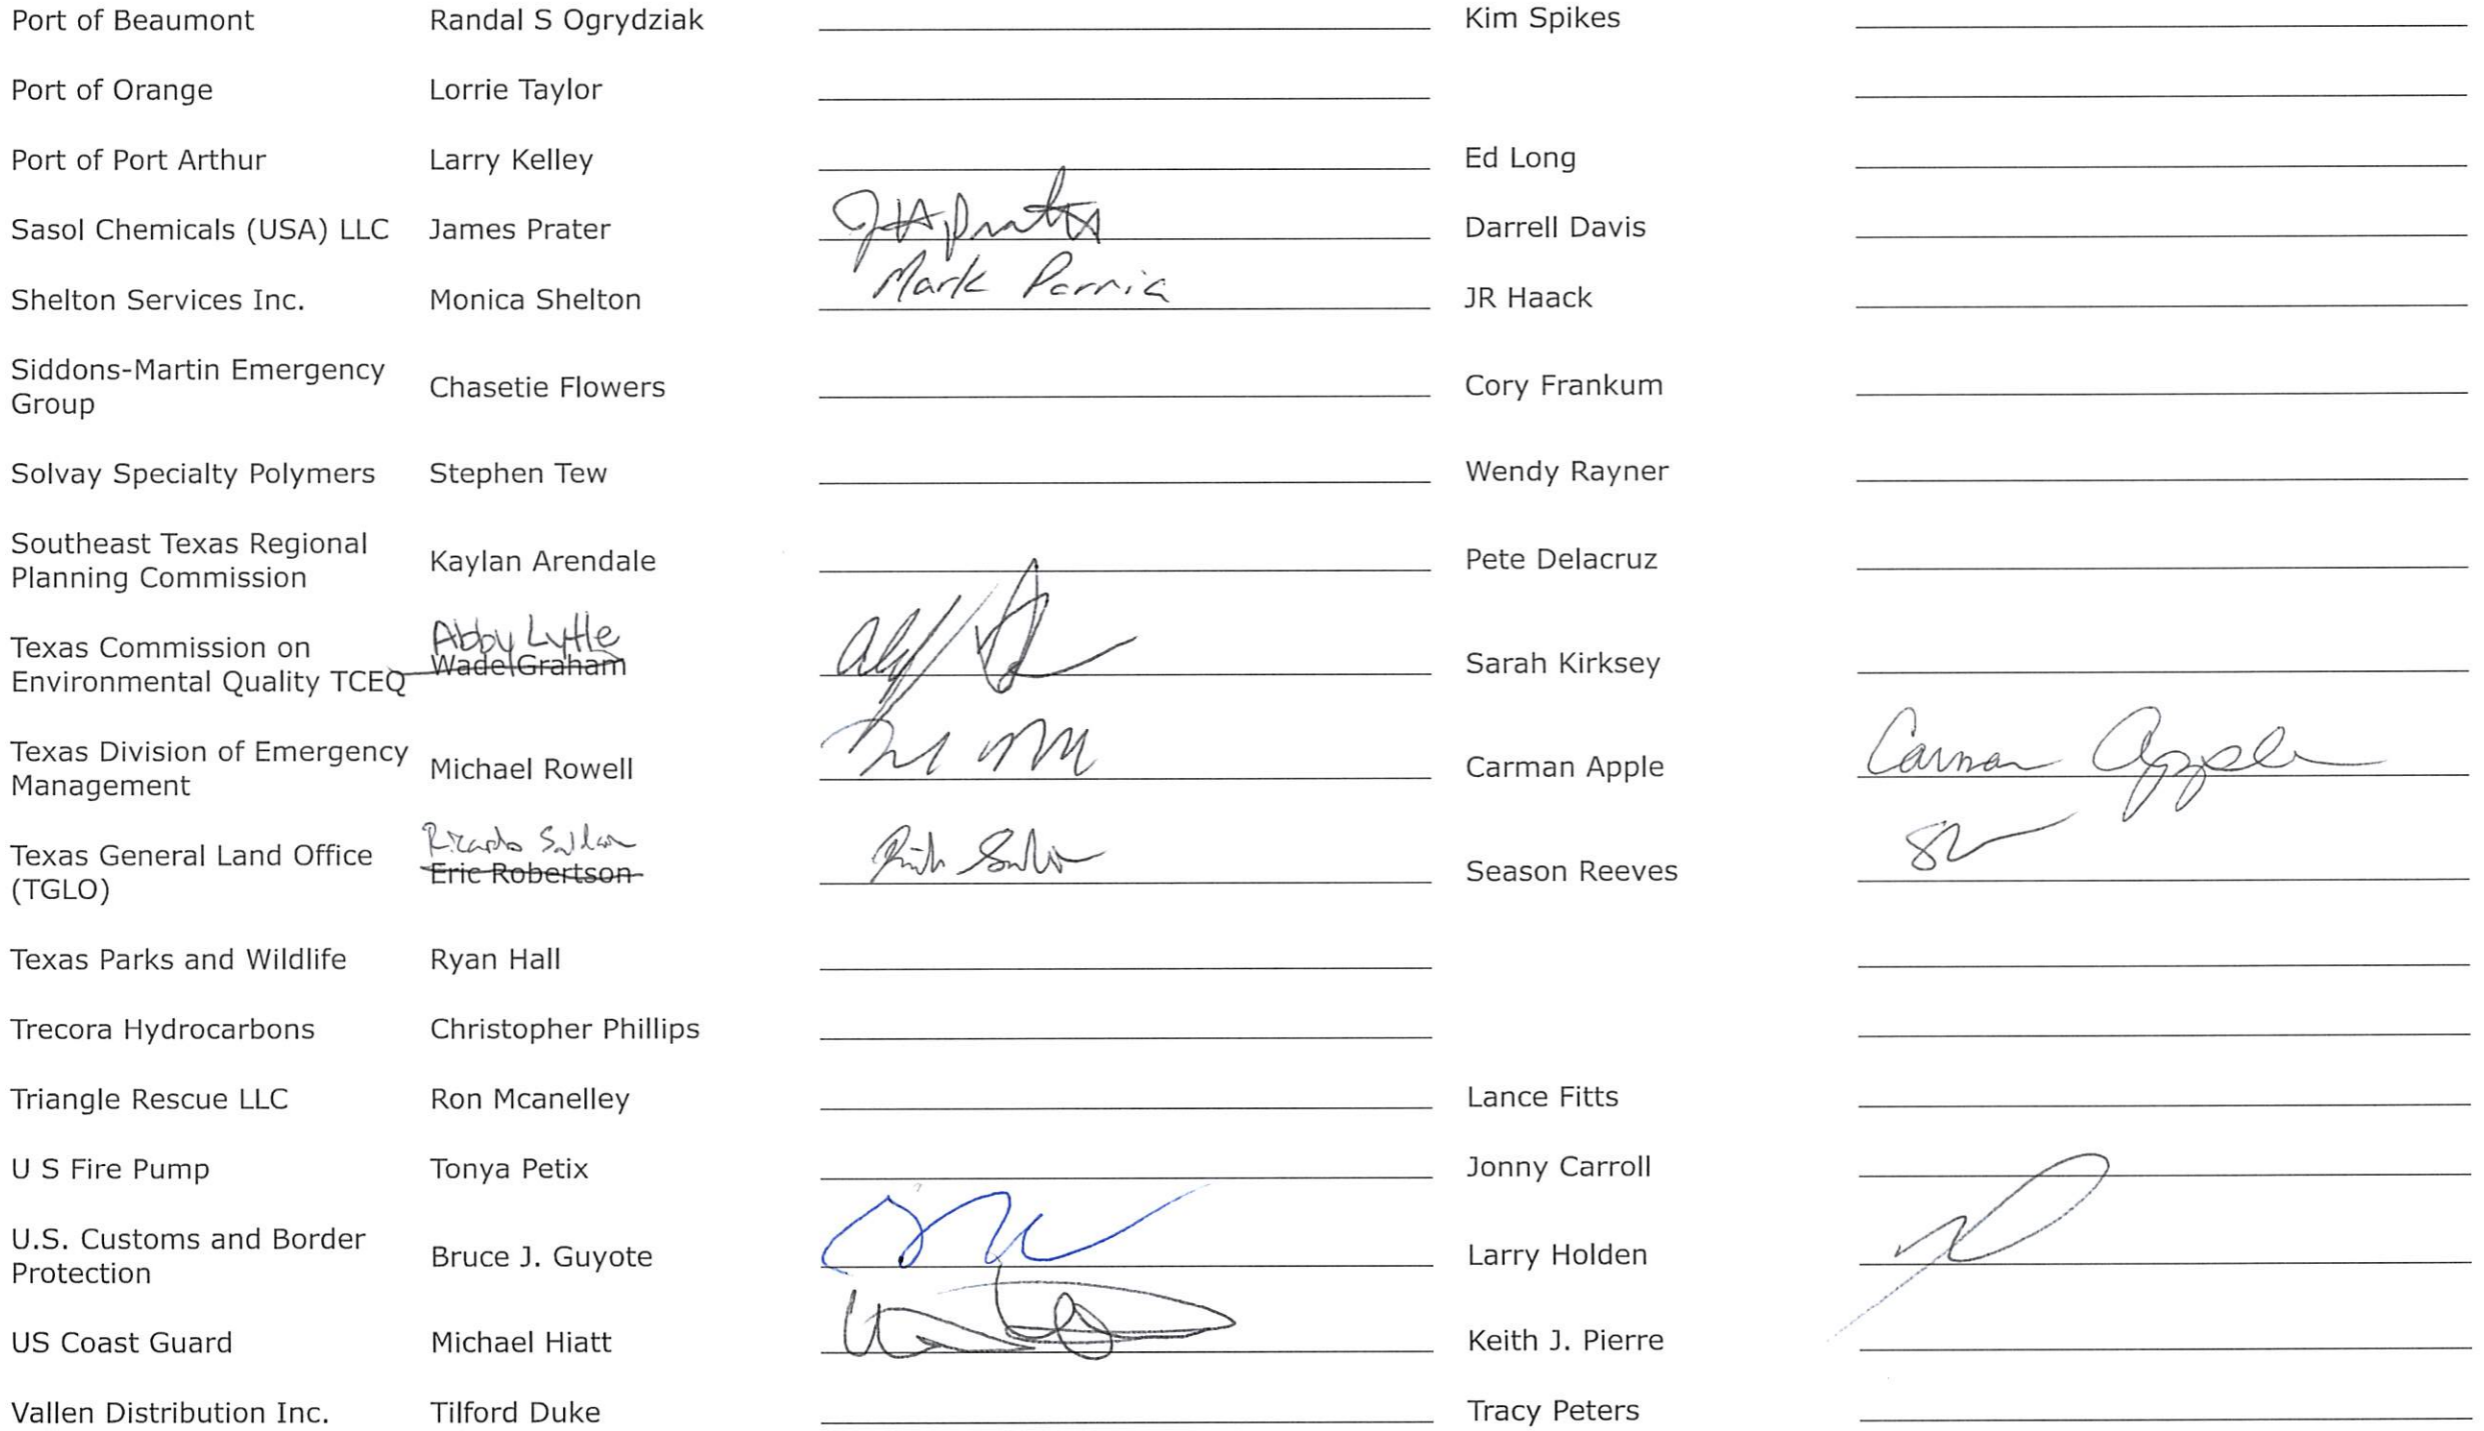 Port of Beaumont Randal S Ogrydziak Kim Spikes
Port of Orange Lorrie Taylor
Port of Port Arthur Larry Kelley Ed Long
Sasol Chemicals (USA) LLC James Prater Darrell Davis
Shelton Services Inc. Monica Shelton Mark JR Haack
Siddons-Martin Emergency
Group Chasetie Flowers Cory Frankum
Solvay Specialty Polymers Stephen Tew Wendy Rayner
Southeast Texas Regional
Planning Commission Kaylan Arendale Pete Delacruz
Abby Lytle
Texas Commission on
Environmental Quality TCEQ Wade Graham Sarah Kirksey
Texas Division of Emergency
Management Michael Rowell Carman Apple Carman Apple
Ricardo
Texas General Land Office
(TGLO) Eric Robertson Season Reeves
Texas Parks and Wildlife Ryan Hall
Trecora Hydrocarbons Christopher Phillips
Triangle Rescue LLC Ron Mcanelley Lance Fitts
U S Fire Pump Tonya Petix Jonny Carroll
U.S. Customs and Border
Protection Bruce J. Guyote Larry Holden
US Coast Guard Michael Hiatt Keith J. Pierre
Vallen Distribution Inc. Tilford Duke Tracy Peters